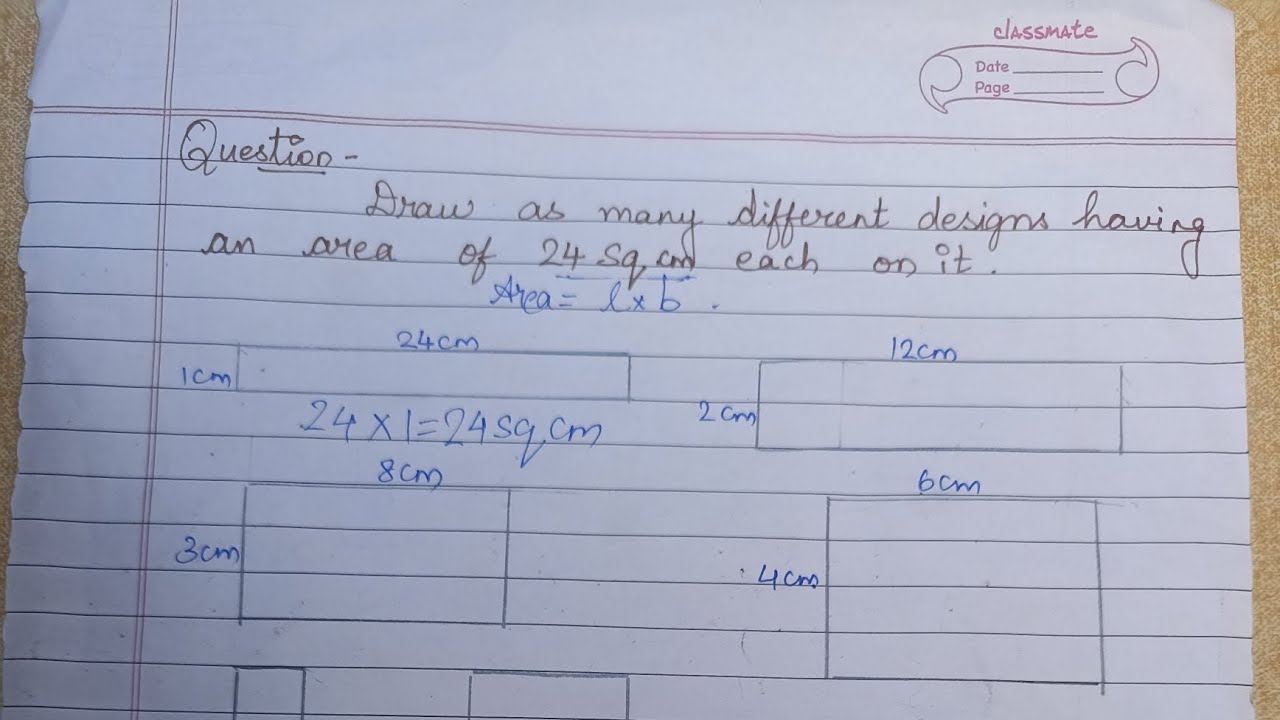 classmate
Date
Page
Question -
Draw as many different designs having
an area of 24 sq. cm each on it.
Area = l × b.
24cm
12cm
1cm
2cm
24 × 1 = 24 sq. cm
8cm
6cm
3cm
4cm